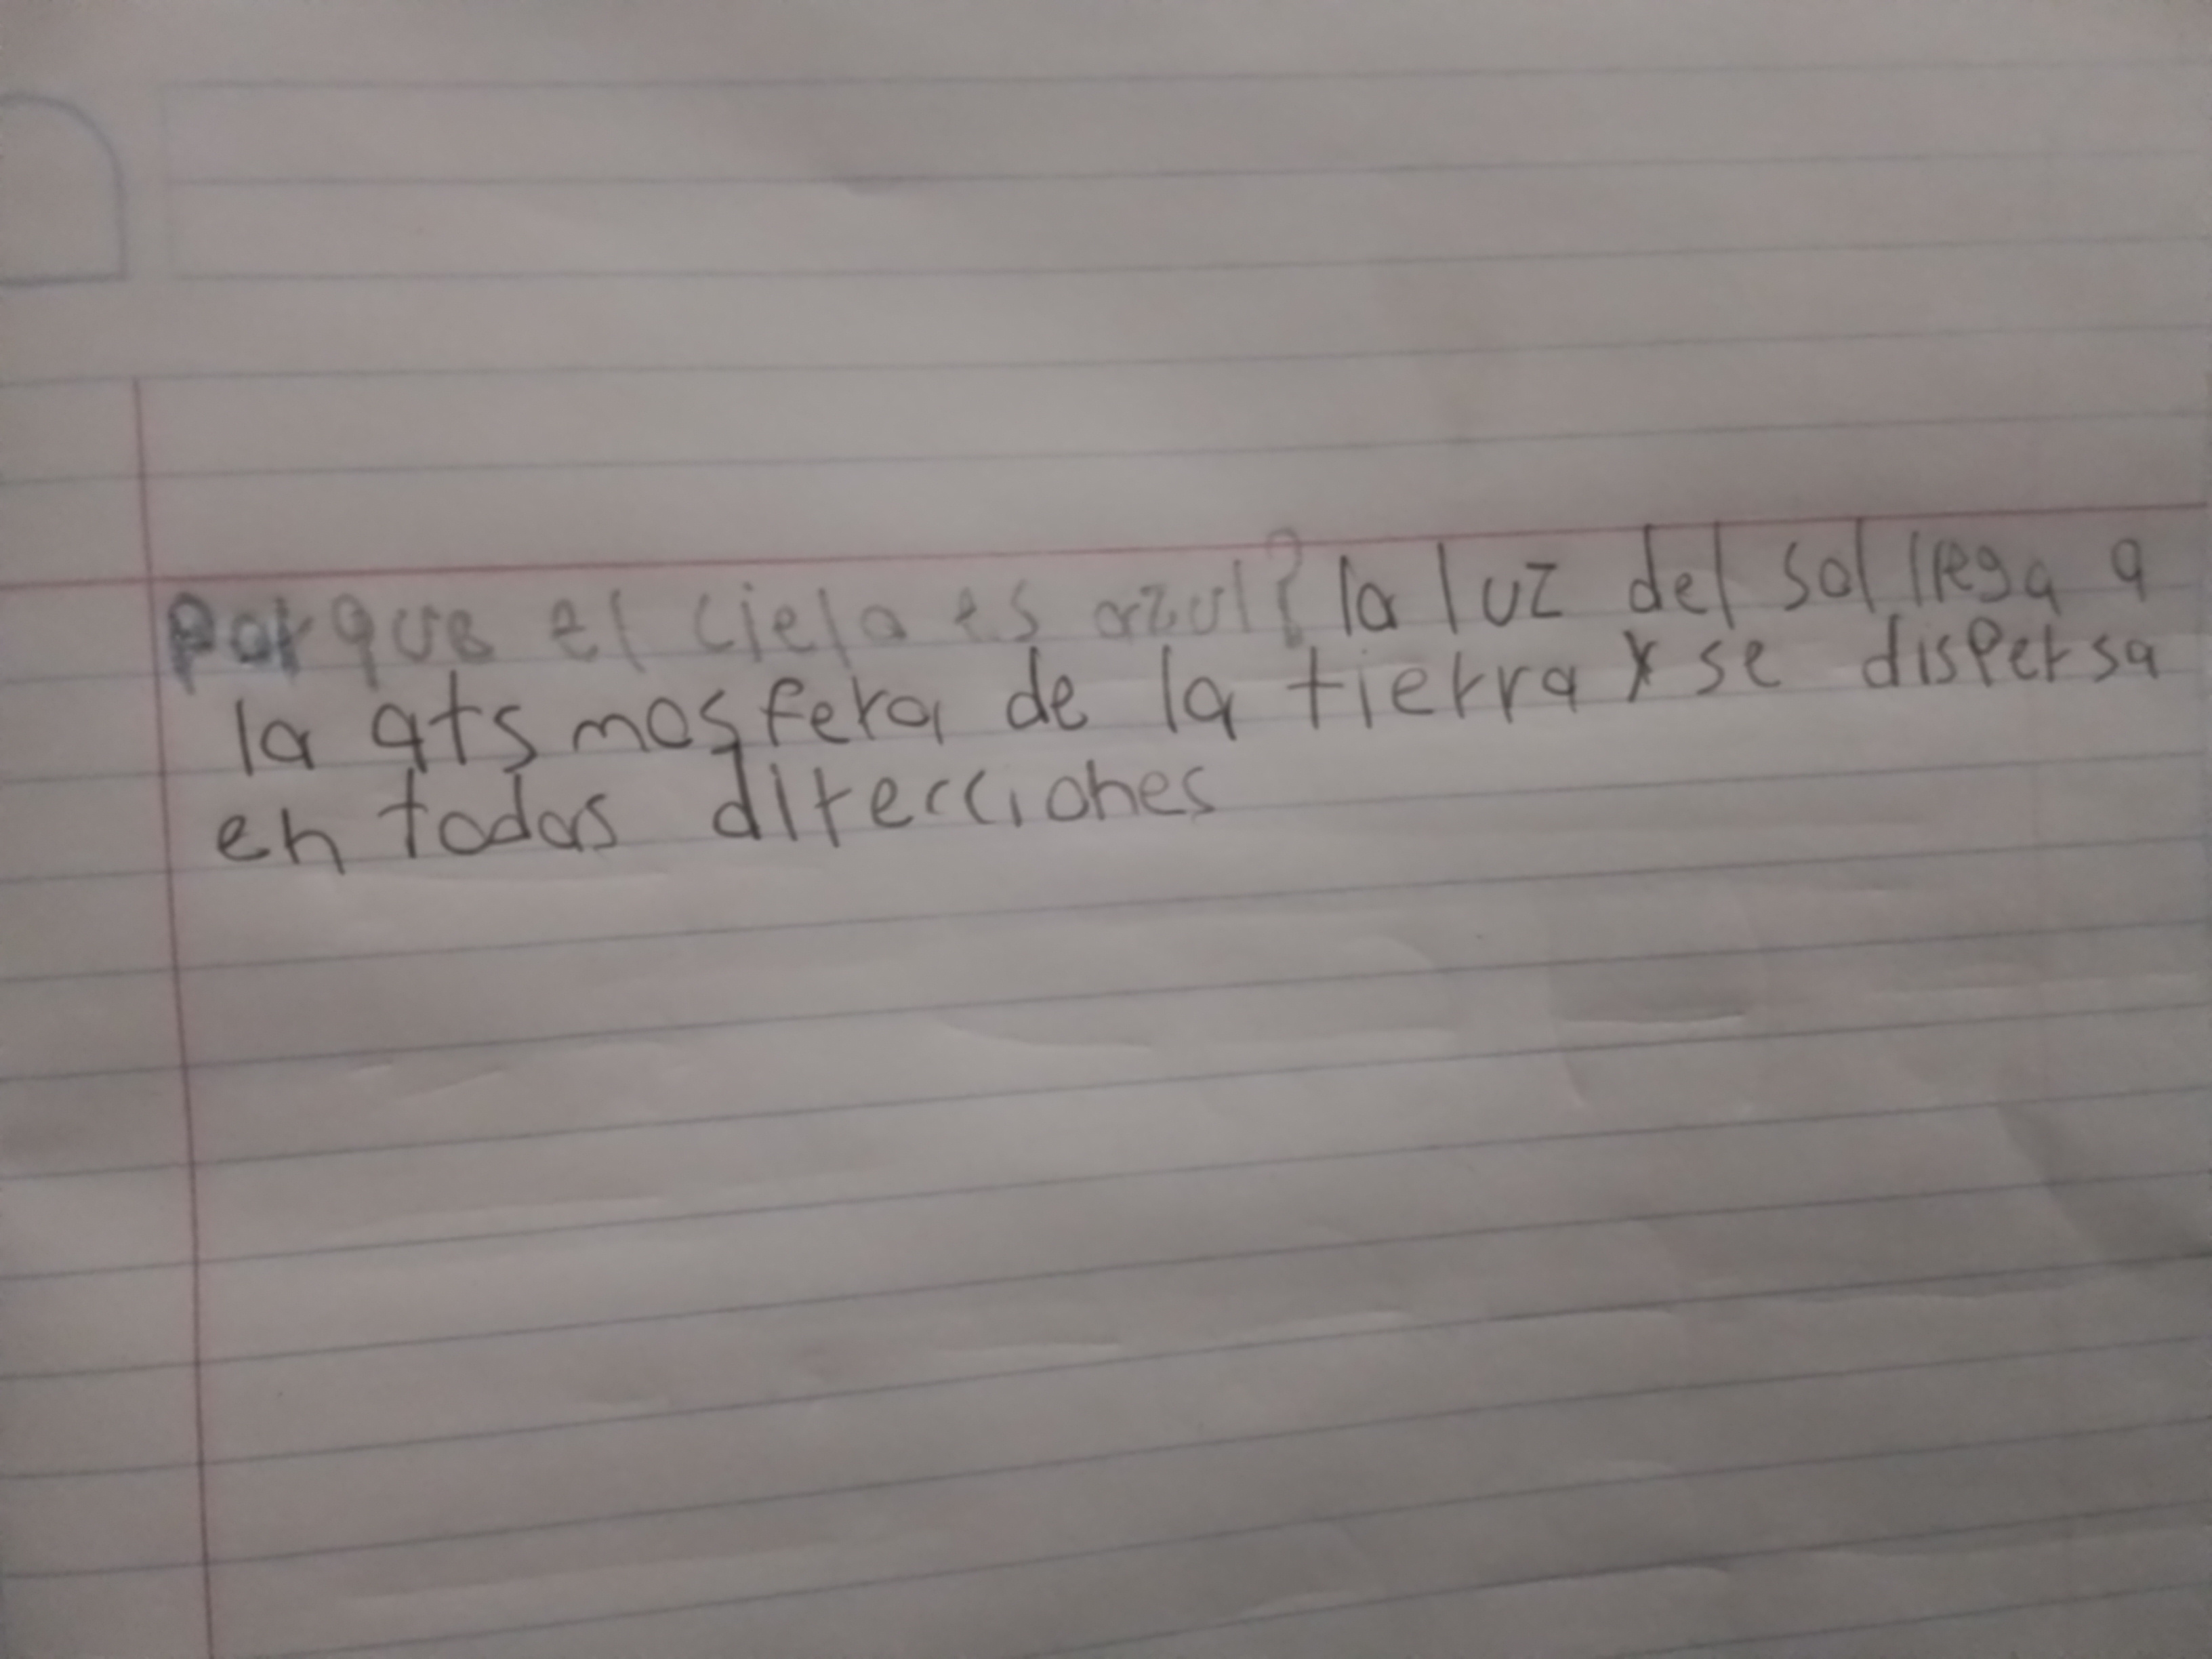 Porque el cielo es azul? la luz del sol llega a
la atsmosfera de la tierra y se dispersa
en todas direcciones